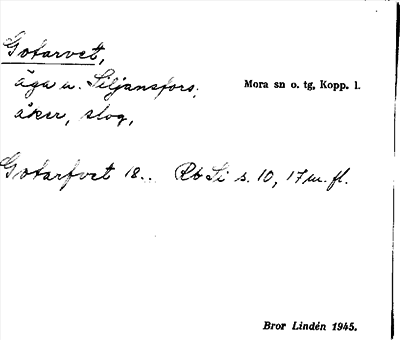 Gotarvet,
äga u. Siljansfors. Mora sn o. tg, Kopp. l.
åker, slog,
Gotarfvet 18.. Rb Si s. 10, 17 m. fl.
Bror Lindén 1945.